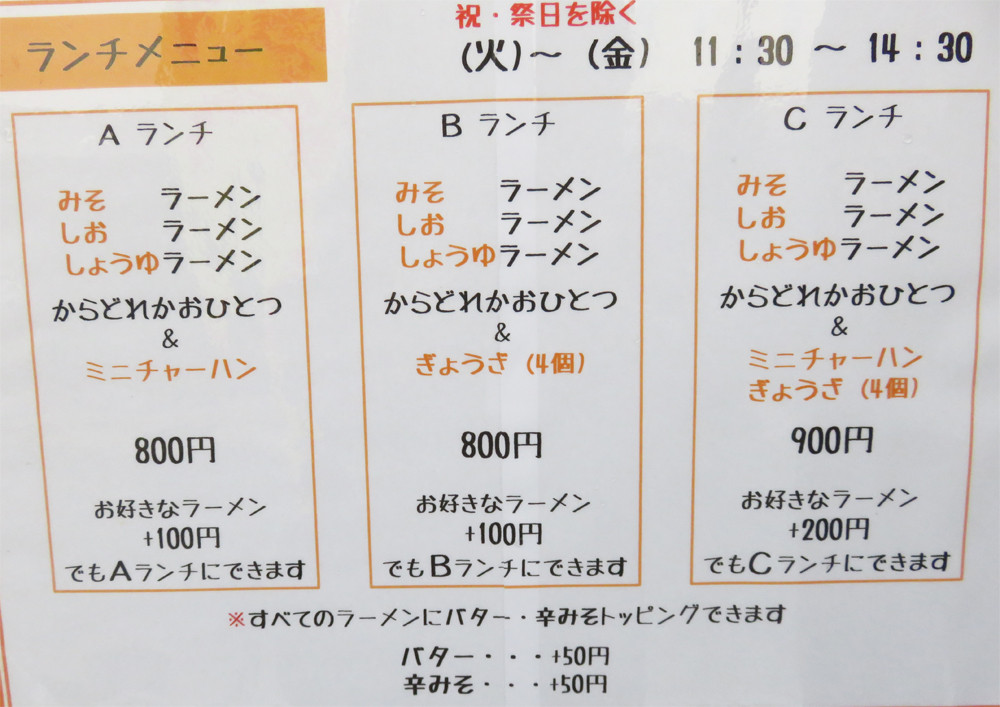 ランチメニュー
祝・祭日を除く
(火)～(金) 11:30 ～ 14:30
A ランチ
みそ ラーメン
しお ラーメン
しょうゆラーメン
からどれかおひとつ
&
ミニチャーハン
800円
お好きなラーメン
+100円
でもAランチにできます
B ランチ
みそ ラーメン
しお ラーメン
しょうゆラーメン
からどれかおひとつ
&
ぎょうざ(4個)
800円
お好きなラーメン
+100円
でもBランチにできます
C ランチ
みそ ラーメン
しお ラーメン
しょうゆラーメン
からどれかおひとつ
&
ミニチャーハン
ぎょうざ(4個)
900円
お好きなラーメン
+200円
でもCランチにできます
※すべてのラーメンにバター・辛みそトッピングできます
バター・・・+50円
辛みそ・・・+50円